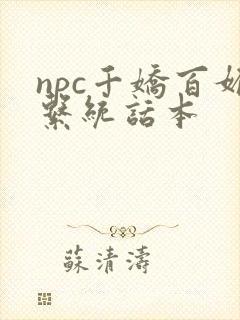 npc千嬌百媚
繫統話本
蘇清濤